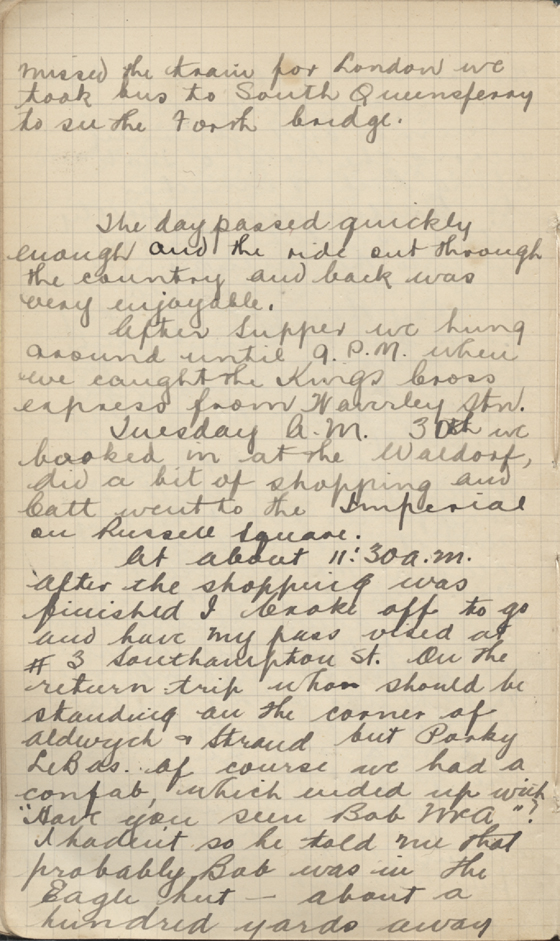 missed the train for London we
took bus to South Queensferry
to see the Forth bridge.
The day passed quickly
enough and the ride out through
the country and back was
very enjoyable.
After supper we hung
around until 9. P.M. when
we caught the Kings Cross
express from Waverley Stn.
Tuesday A.M. 30th we
booked in at the Waldorf,
did a bit of shopping and
Catt went to the Imperial
on Russell Square.
At about 11:30 a.m.
after the shopping was
finished I broke off to go
and have my pass vised at
# 3 Southampton St. On the
return trip whom should be
standing on the corner of
aldwych & Strand but Porky
LeBas. of course we had a
confab, which ended up with
"Have you seen Bob"?
I hadent so he told me that
probably Bob was in the
Eagle hut — about a
hundred yards away